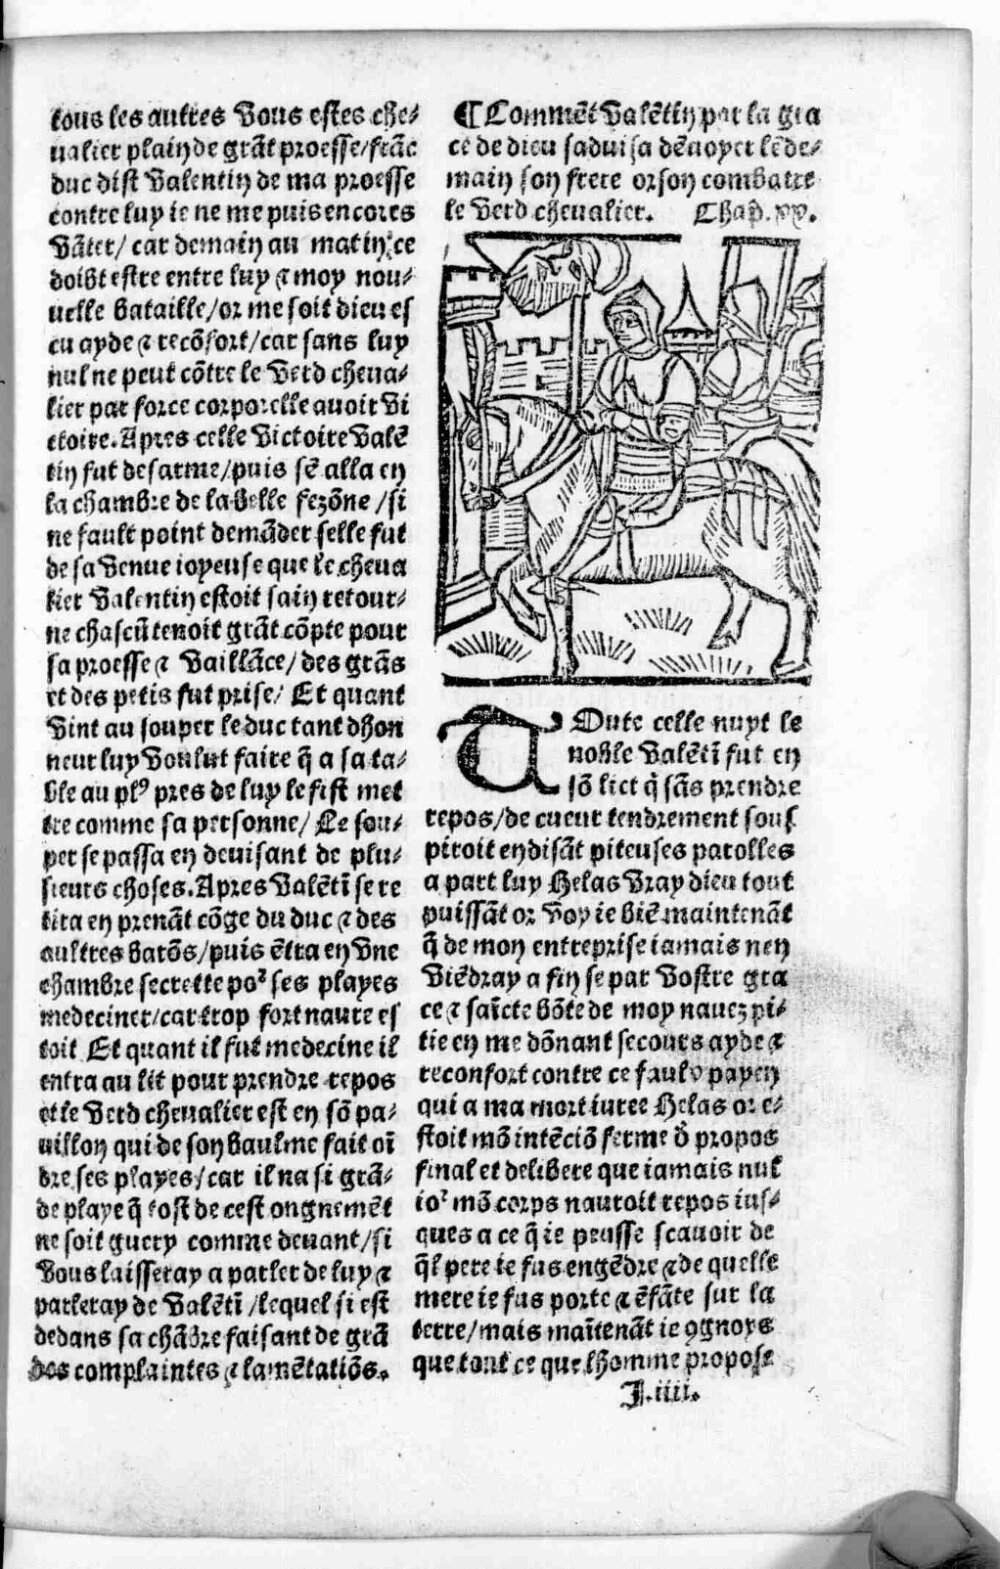 tous les autres Vous estes che-
ualier plain de grāt proesse/frāc
duc dist Valentin de ma proesse
contre luy ie ne me puis encores
vāter/ car demain au matin ce
doibt estre entre luy ⁊ moy nou-
uelle bataille/or me soit dieu es
cu ayde ⁊ recōfort/car sans luy
nul ne peut cōtre le Verd cheua-
lier par force corporelle auoir vi
ctoire. Apres celle victoire Valē
tin fut desarme/puis sē alla en
la chambre de la belle fezōne /si
ne fault point demāder selle fut
de sa venue ioyeuse que le cheua
lier Valentin estoit sain retour-
ne chascū tenoit grāt cōpte pour
sa proesse ⁊ vaillāce/ des grās
et des petis fut prise/ Et quant
vint au souper le duc tant dhon
neur luy voulut faire q̄ a sa ta-
ble au plꝰ pres de luy le fist met
tre comme sa personne/ Le sou-
per se passa en deuisant de plu-
sieurs choses. Apres Valētī se re
tira en prenāt cōge du duc ⁊ des
aultres barōs/puis ētra en vne
chambre secrette poꝰ ses playes
medeciner/car trop fort naure es
toit Et quant il fut medecine il
entra au lit pour prendre repos
et le Verd cheualier est en sō pa-
uillon qui de son baulme fait oī
dre ses playes/car il na si grā-
de playe q̄ tost de cest ongnemēt
ne soit guery comme deuant/si
vous laisseray a parler de luy ⁊
parleray de Valētī /lequel si est
dedans sa chābre faisant de grā
des complaintes ⁊ lamētatiōs.
¶ Commēt Valētin par la gra
ce de dieu saduisa dēuoyer lēde-
main son frere orson combatre
le Verd cheualier. Chap. xx.
TOute celle nuyt le
noble Valētī fut en
sō lict q̄ sās prendre
repos/de cueur tendrement sous
piroit en disāt piteuses parolles
a part luy Helas vray dieu tout
puissāt or voy ie biē maintenāt
q̄ de mon entreprise iamais nen
viēdray a fin se par vostre gra
ce ⁊ saīcte bōte de moy nauez pi-
tie en me dōnant secours ayde ⁊
reconfort contre ce faulx payen
qui a ma mort iuree Helas or e-
stoit mō intēciō ferme d̄ propos
final et delibere que iamais nul
ioꝰ mō corps nauroit repos ius-
ques a ce q̄ ie peusse scauoir de
q̄l pere ie fus engēdre ⁊ de quelle
mere ie fus porte ⁊ ēfāte sur la
terre/mais maītenāt ie ꝯgnoys
que tout ce que lhomme propose
J.iiii.